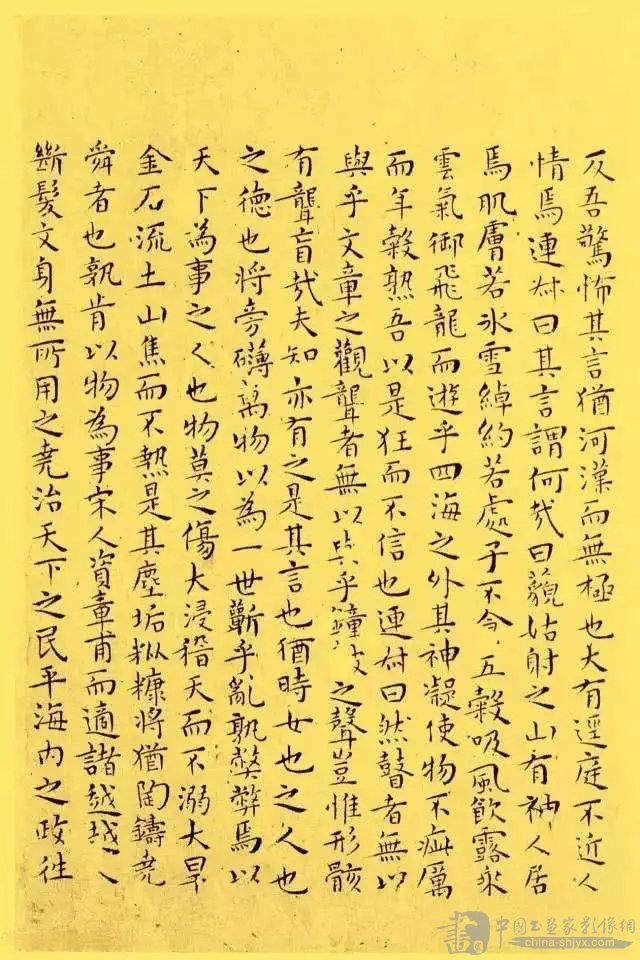 反吾驚怖其言猶河漢而無極也大有逕庭不近人
情焉連叔曰其言謂何哉曰藐姑射之山有神人居
焉肌膚若冰雪綽約若處子不食五穀吸風飲露乘
雲氣御飛龍而遊乎四海之外其神凝使物不疵厲
而年穀熟吾以是狂而不信也連叔曰然瞽者無以
與乎文章之觀聾者無以與乎鐘鼓之聲豈惟形骸
有聾盲哉夫知亦有之是其言也猶時女也之人也
之德也將旁礴萬物以為一世蘄乎亂孰弊弊焉以
天下為事之人也物莫之傷大浸稽天而不溺大旱
金石流土山焦而不熱是其塵垢粃糠將猶陶鑄堯
舜者也孰肯以物為事宋人資章甫而適諸越越人
斷髮文身無所用之堯治天下之民平海內之政往
中國書畫家影像網
china-shjyx.com